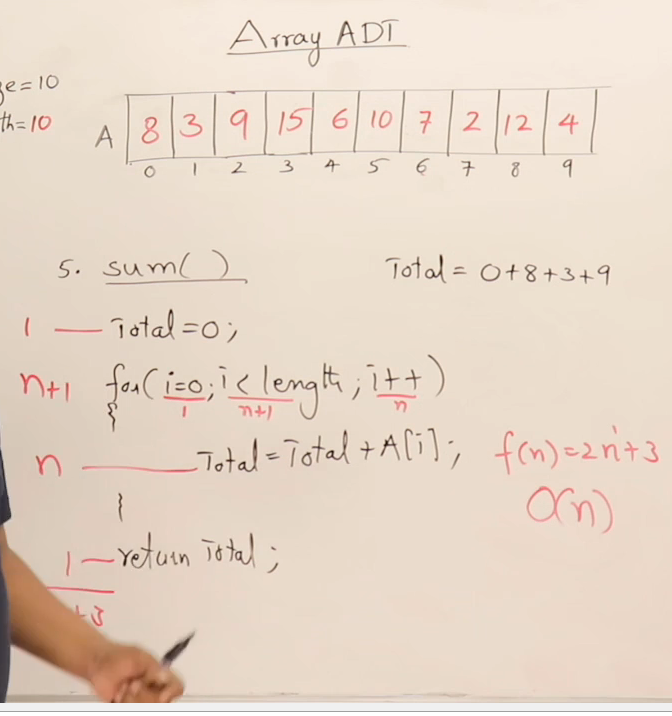 Array ADT
ze=10
th=10
A 8 3 9 15 6 10 7 2 12 4
0 1 2 3 4 5 6 7 8 9
5. sum( )
Total = 0+8+3+9
1 — Total=0;
n+1 for(i=0; i< length; i++)
1 n+1 n
{
n — Total=Total+A[i]; f(n)=2n¹+3
} O(n)
1 — return Total;
+3